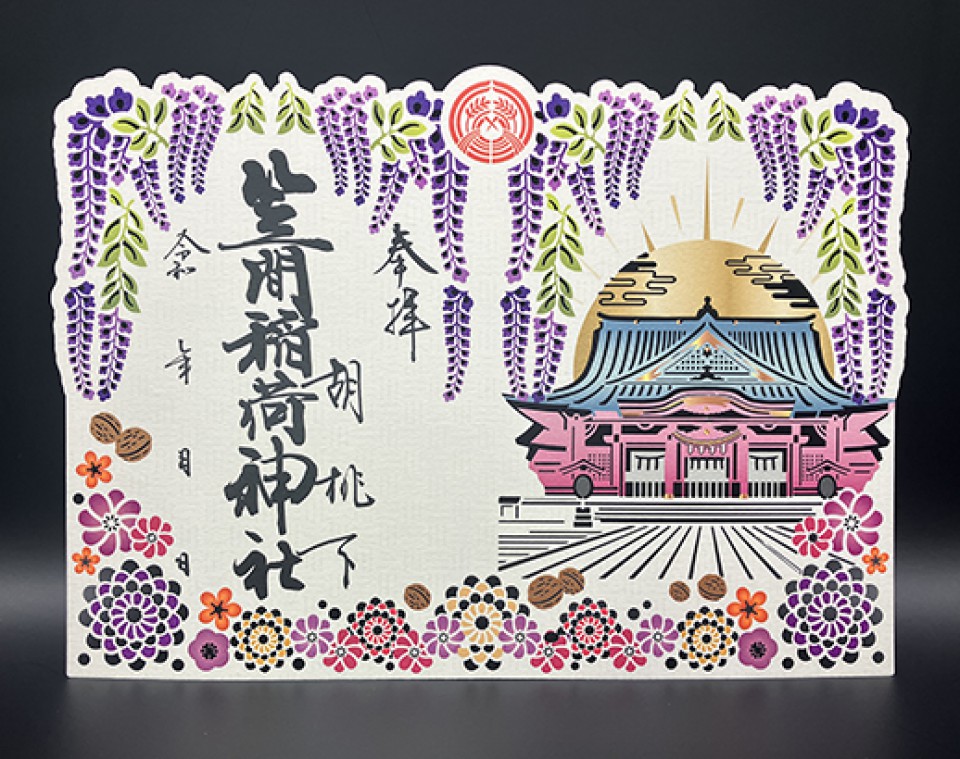 奉拝
胡桃下
笠間稲荷神社
令和 年 月 日